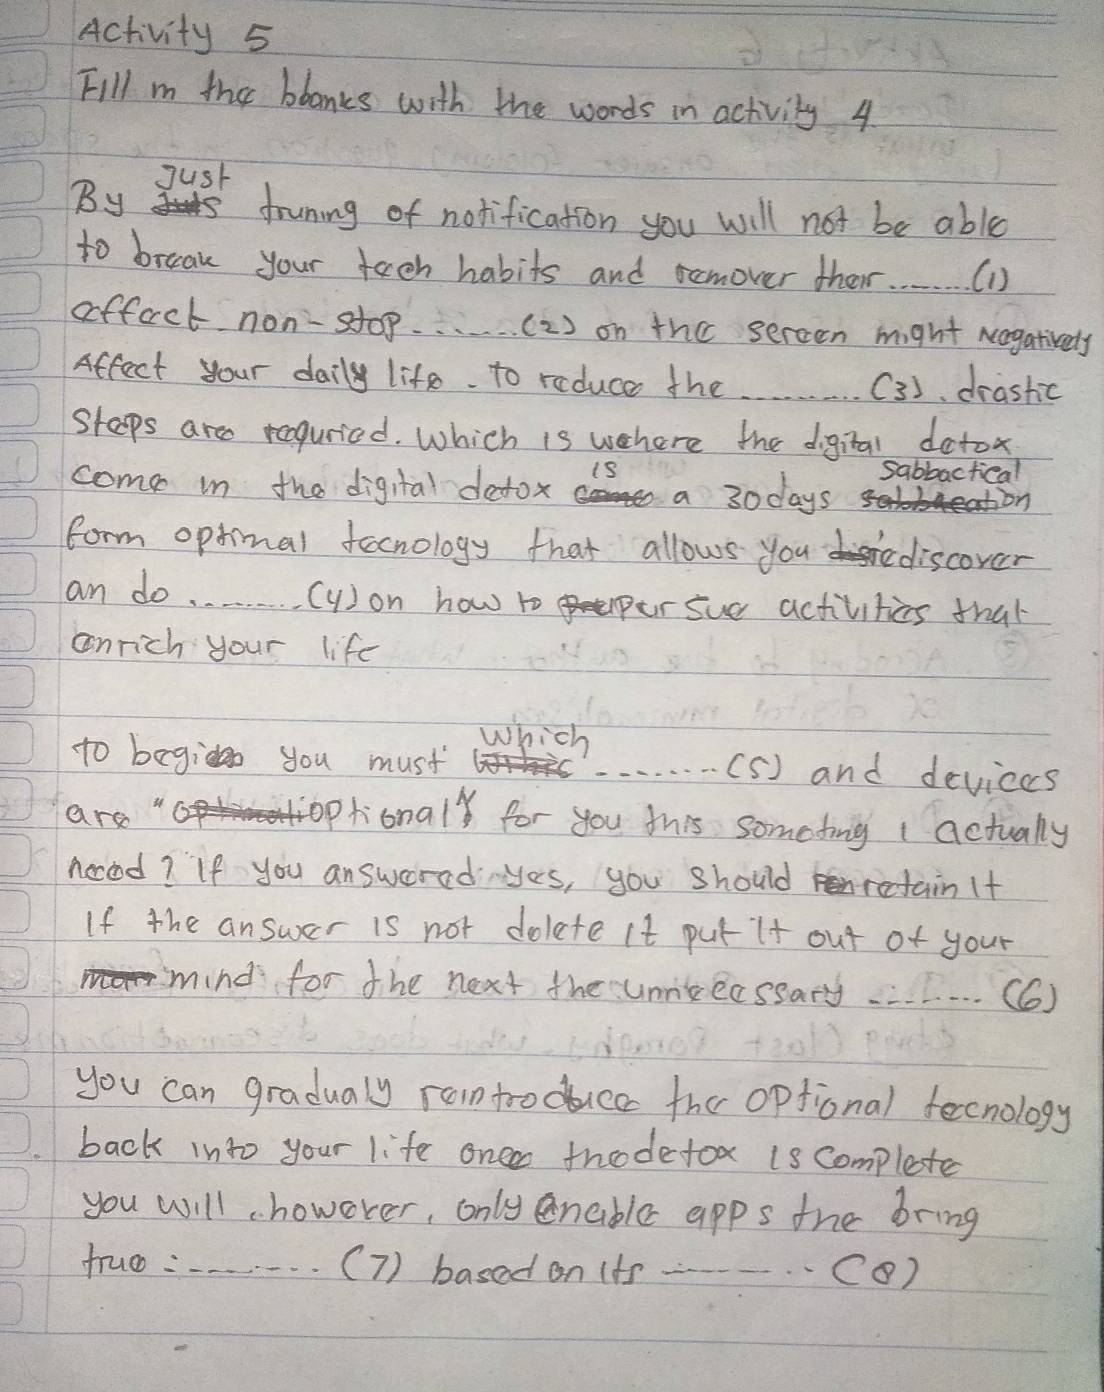 Activity 5
Fill in the blanks with the words in activity 4.
By Just truning of notification you will not be able
to break your tech habits and remover their ........(1)
affect. non-stop ........(2) on the screen might Negatively
Affect your daily life. To reduce the .......... (3). drastic
Steps are requried. Which is wehere the digital detox
come in the digital detox is a 30days sabbactical
form optimal tecnology that allows you rediscover
an do .......... (4) on how to pursue activities that
enrich your life
to begin you must which ........(5) and devices
are "optional" for you this someting I actually
need? If you answered yes, you should retain It
If the answer is not delete it put it out of your
mind for the next the unneecssary ........ (6)
you can gradualy reintroduce the optional tecnology
back into your life once thedetox is complete
you will, however, only enable apps the bring
true ........ (7) based on its .......... (8)